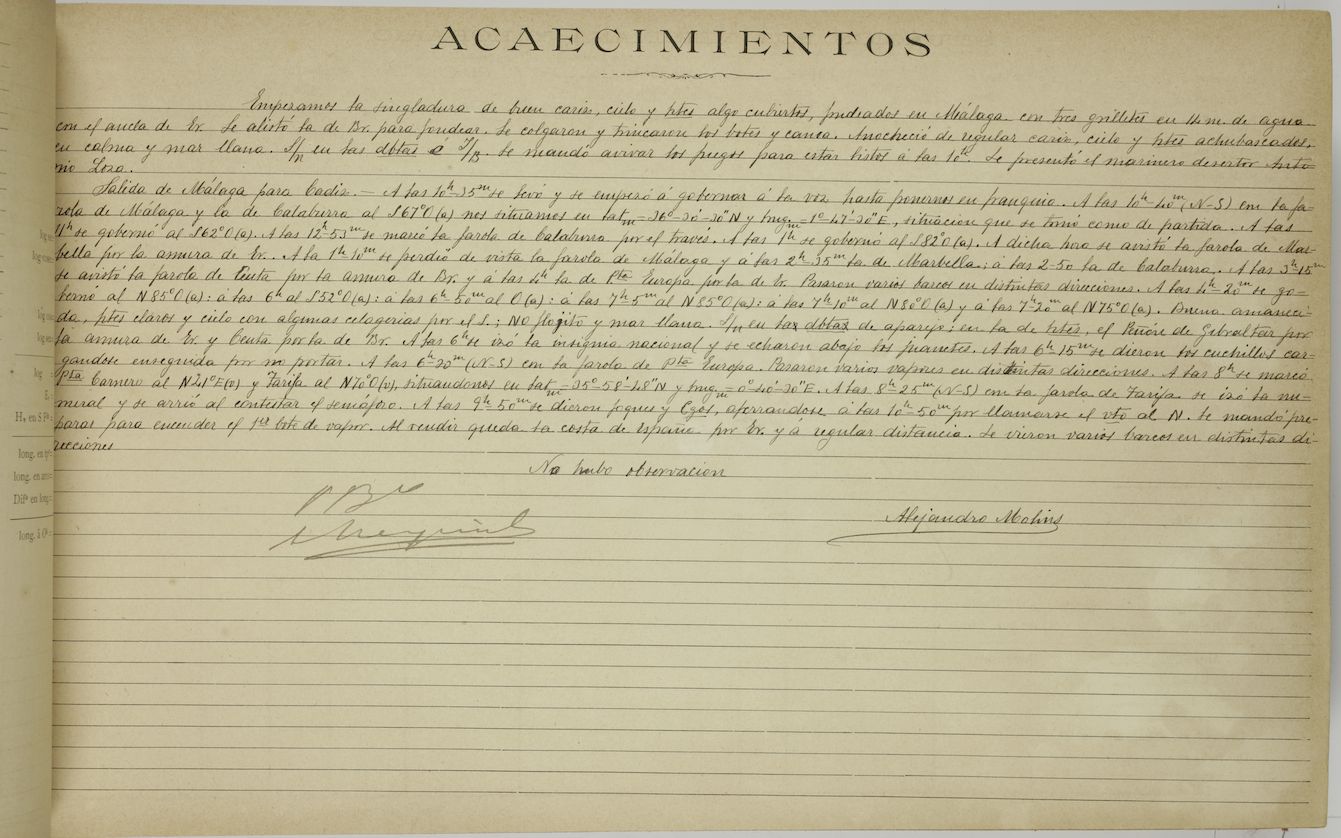 ACAECIMIENTOS
Empezamos la singladura de buen cariz, cielo y htes algo cubiertos, fondeados en Málaga con tres grilletes en 14 m. de agua
con el ancla de Er. Se alistó la de Br. para fondear. Se colgaron y trincaron los botes y canoa. Anocheció de regular cariz, cielo y htes achubascados,
en calma y mar llana. S/n en las dbtas e I/B. Se mandó avivar los fuegos para estar listos á las 10h. Se presentó el marinero desertor Anto
nio Loza.
Salida de Málaga para Cadiz. — A las 10h-35m se levó y se empezó á gobernar á la voz hasta ponernos en franquia. A las 10h-40m (N-S) con la fa-
rola de Málaga y la de Calaburra al S67°O(a) nos situamos en latm=36°-30'-30"N y longm=1°-47'-20"E, situacion que se tomó como de partida. A las
11h se gobernó al S62°O(a). A las 12h-53m se marcó la farola de Calaburra por el través. A las 1h se gobernó al S82°O(a). A dicha hora se avistó la farola de Mar-
bella por la amura de Er. A la 1h 10m se perdió de vista la farola de Málaga y á las 2h-35m la de Marbella; á las 2-50 la de Calaburra. A las 3h-15m
se avistó la farola de Ceuta por la amura de Br. y á las 4h la de Pta Europa por la de Er. Pasaron varios barcos en distintas direcciones. A las 4h-20m se go-
bernó al N85°O(a): á las 6h al S52°O(a): á las 6h-50m al O(a): á las 7h-5m al N85°O(a): á las 7h 10m al N80°O(a) y á las 7h-20m al N75°O(a). Buena amaneci-
da, htes claros y cielo con algunas celagerias por el S.; NO flojito y mar llana. S/n en las dbtas de aparejo; en la de htes, el Peñón de Gebraltar por
la amura de Er. y Ceuta por la de Br. A las 6h se izó la insignia nacional y se echaron abajo los juanetes. A las 6h 15m se dieron los cuchillos car-
gandose enseguida por no portar. A las 6h-20m (N-S) con la farola de Pta Europa. Pasaron varios vapores en distintas direcciones. A las 8h se marcó
Pta Carnero al N41°E(v) y Tarifa al N70°O(v), situandonos en latm=35°-58'-48"N y longm=0°-40'-30"E. A las 8h-25m (N-S) con la farola de Tarifa se izó la nu-
meral y se arrió al contestar el semáforo. A las 9h-50m se dieron foques y Cgos, aferrandose á las 10h-50m por llamarse el vto al N. Se mandó pre-
parar para encender el 1er bote de vapor. Al rendir queda la costa de España por Er. y á regular distancia. Se vieron varios barcos en distintas di-
recciones
No hubo observacion
Alejandro Molins
log
long. en
long. en
Difa en long=
long. á